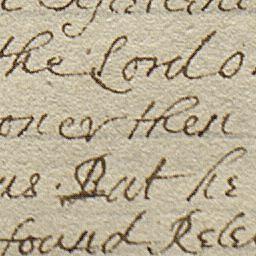 the Lord o
oner then
us. But he
found Rele